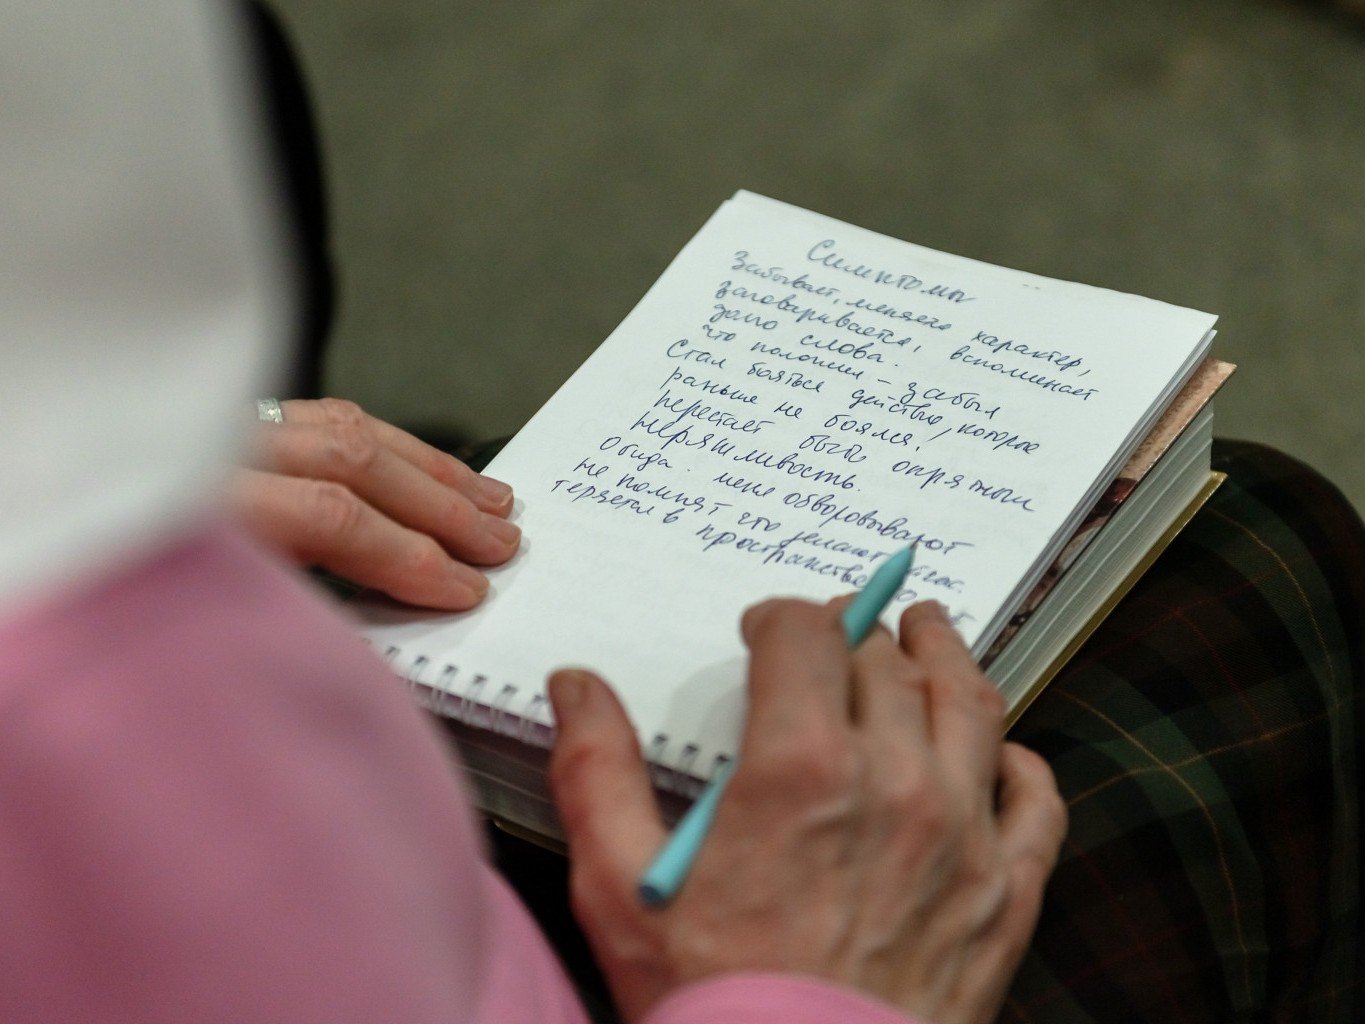 Симптомы
Забывает, меняется характер,
заговаривается, вспоминает
долго слова.
что положил – забыл
Стал бояться действие, которое
раньше не боялся,
перестаёт быть опрятным
неряшливость.
Обида. меня обворовывают
не помнят что делают
теряется в пространстве